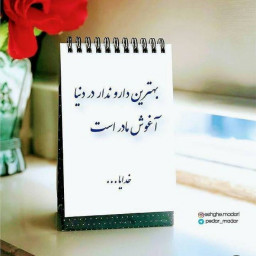 بهترین دارو ندار در دنیا
آغوش مادر است
خدایا...
eshghe.madari
pedar_madar